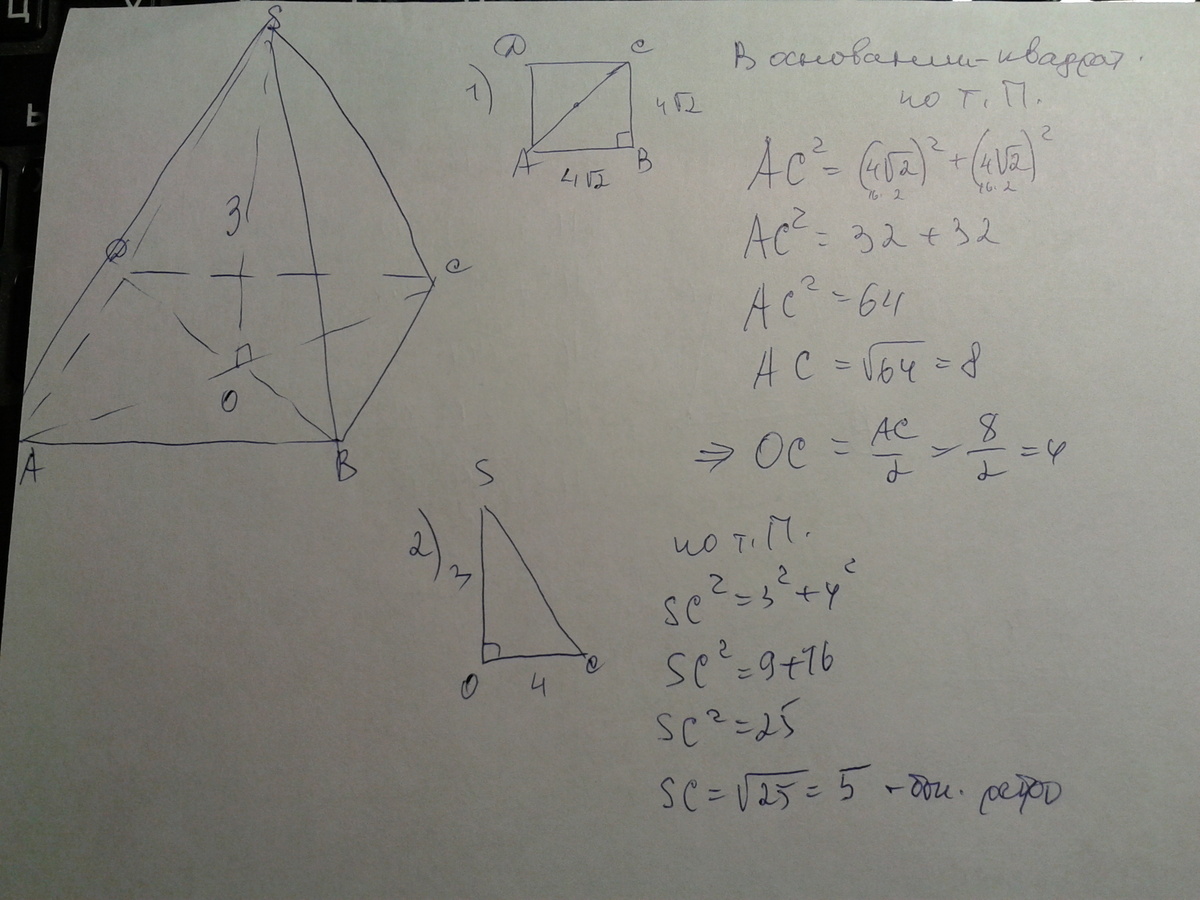 S
3
D
C
O
A
B
1)
D
C
4√2
A
B
4√2
В основании - квадрат.
по т. П.
AC² = (4√2)² + (4√2)²
16·2 16·2
AC² = 32 + 32
AC² = 64
AC = √64 = 8
⇒ OC = AC/2 = 8/2 = 4
2)
S
3
O
4
C
по т. П.
SC² = 3² + 4²
SC² = 9 + 16
SC² = 25
SC = √25 = 5 - бок. ребро